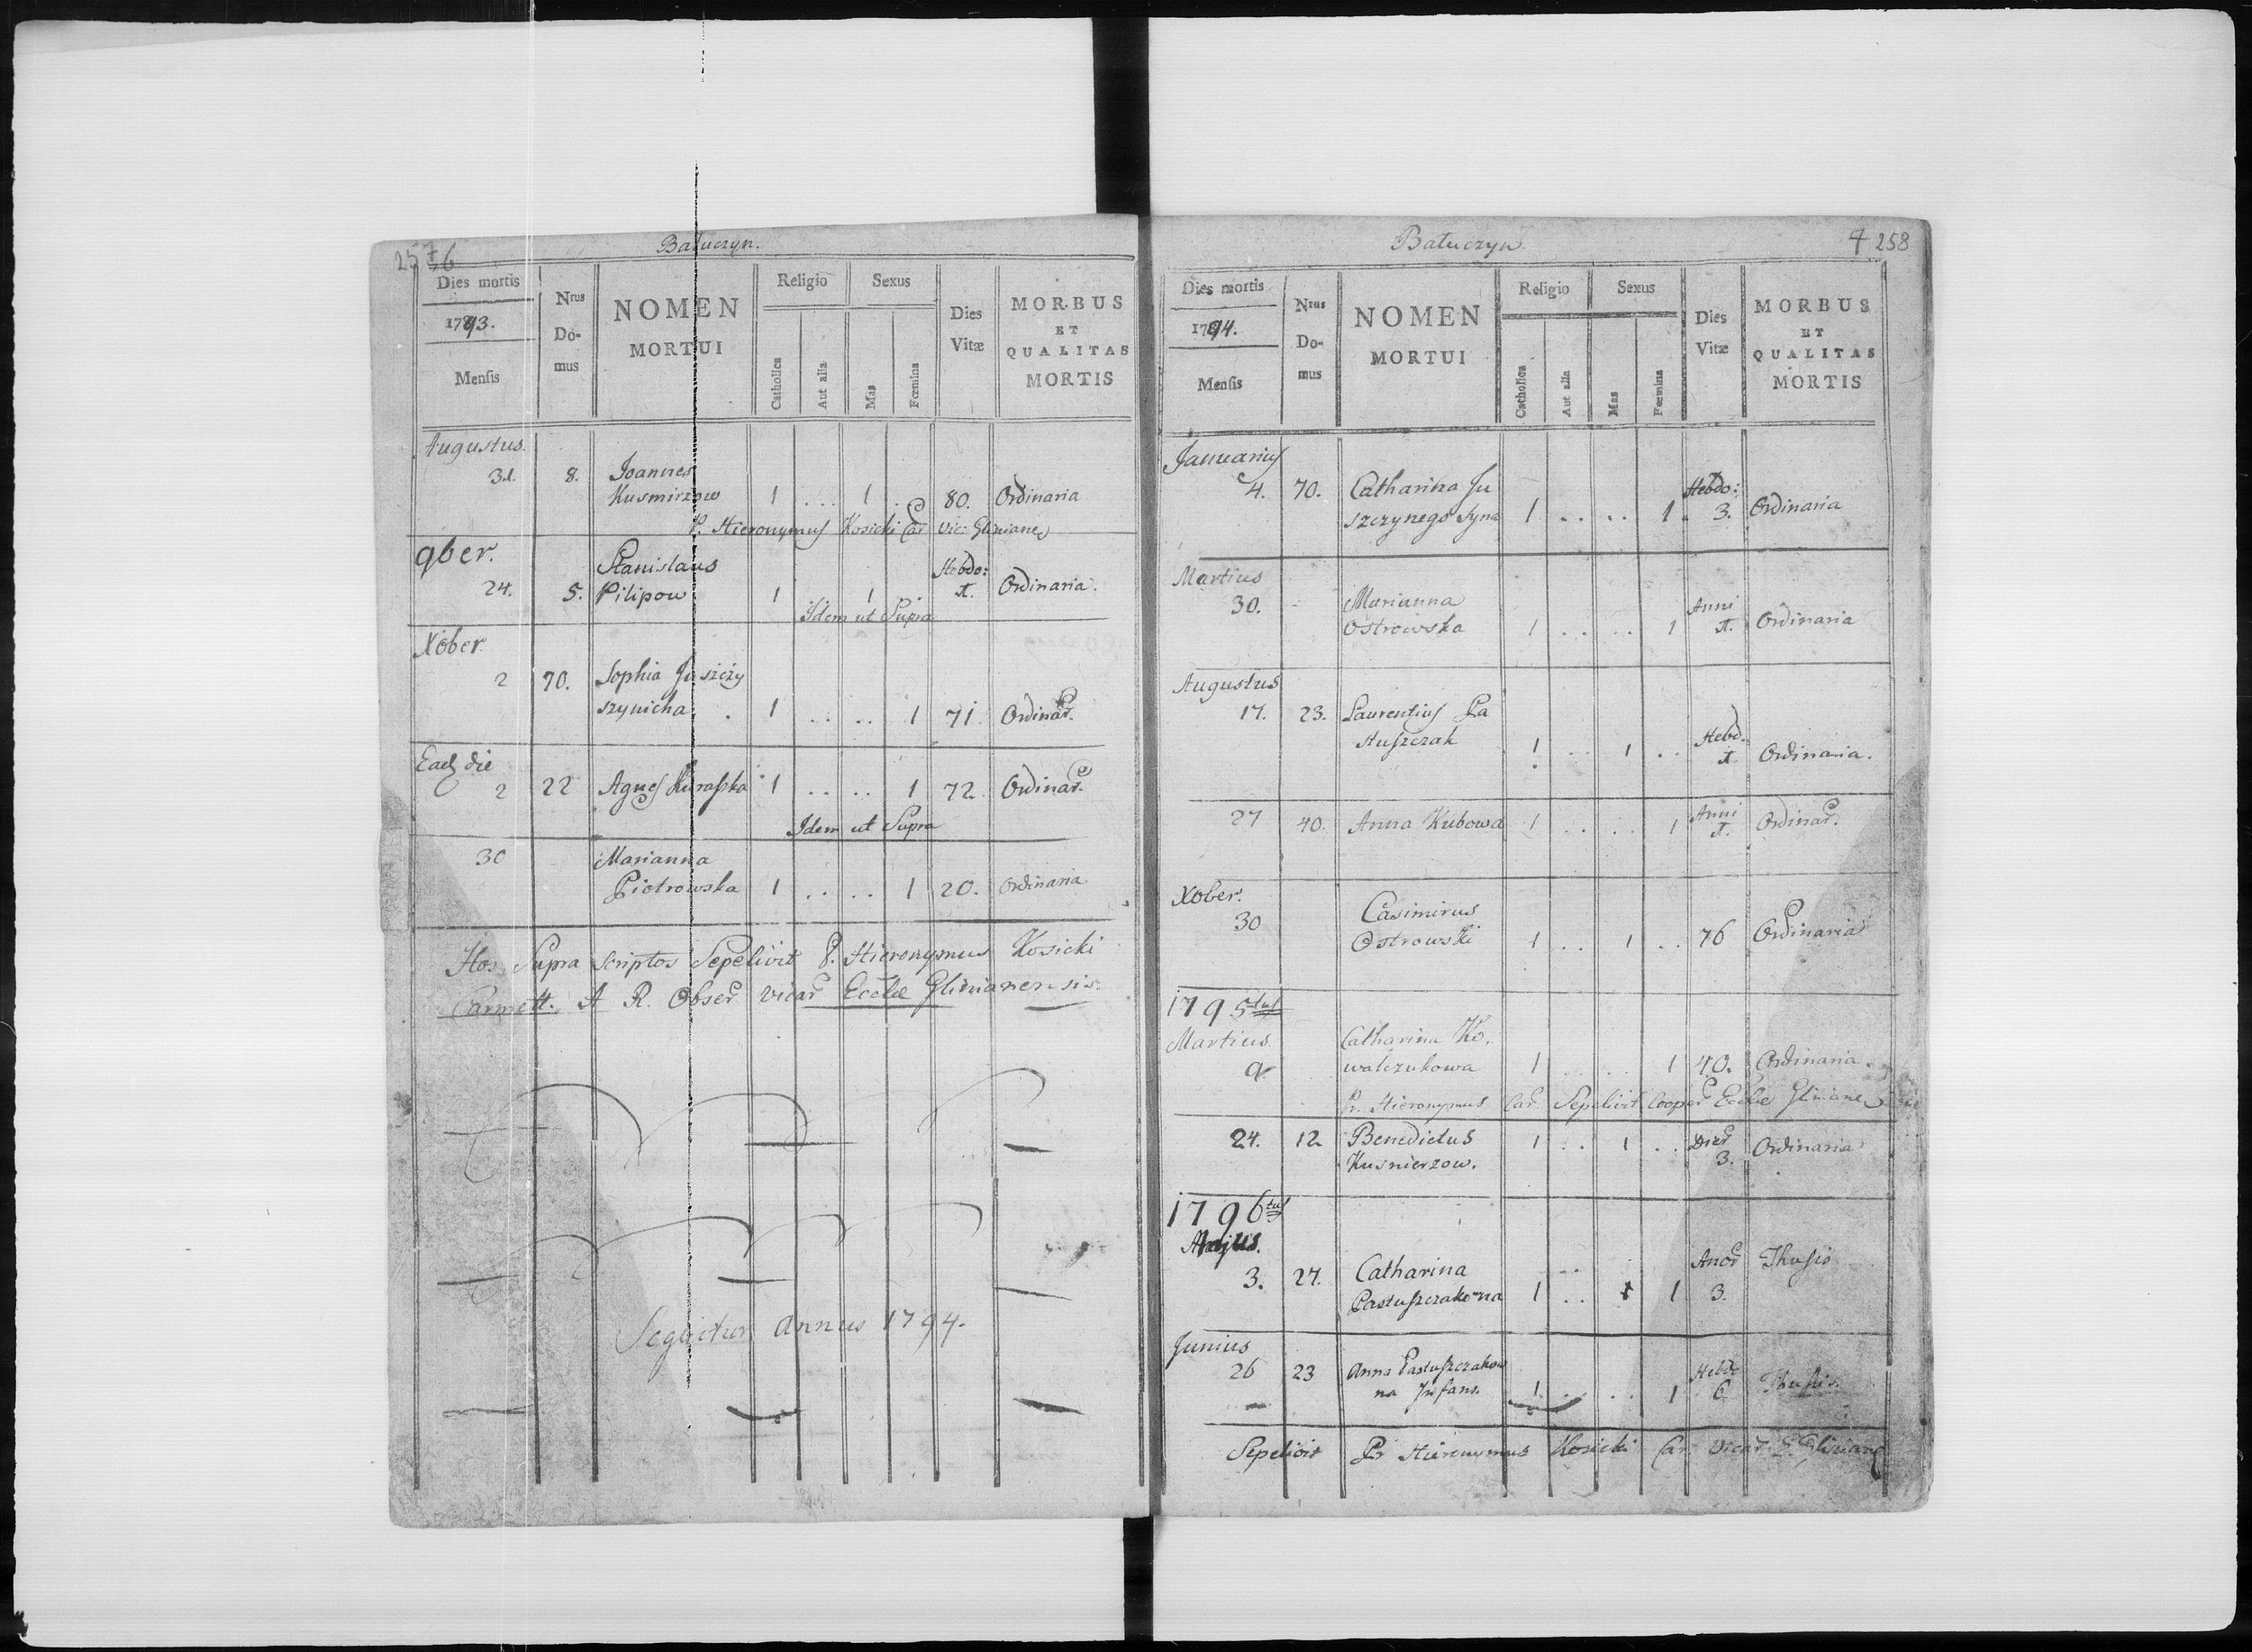 257
Batuczyn.
Dies mortis
1793.
Mensis
Nrus Do-mus
NOMEN MORTUI
Religio
Catholica
Aut alia
Sexus
Mas
Fœmina
Dies Vitæ
MORBUS ET QUALITAS MORTIS
Augustus.
31. 8. Joannes
Kusmirzow 1 . . . 1 . 80. Ordinaria
P. Hieronymus Kosicki Car Vic: Glinianes
9ber. Stanislaus Hebdo:
24. 5. Pilipow 1 1 1. Ordinaria.
Idem ut Supra
Xober
2 70. Sophia Juszczy
szynicha . 1 . . . . 1 71 Ordinar.
Ead die
2 22 Agnes Kuraszka 1 . . . . 1 72 Ordinar.
Idem ut Supra
30 Marianna
Piotrowska 1 . . . . 1 20. Ordinaria
Hos Supra Scriptos Sepelivit P. Hieronymus Kosicki
Carmelit. A R. Obser Vicar Eccle Glinianensis.
Sequitur Annus 1794.
258
Batuczyn
Dies mortis
1794.
Mensis
Nrus Do-mus
NOMEN MORTUI
Religio
Catholica
Aut alia
Sexus
Mas
Fœmina
Dies Vitæ
MORBUS ET QUALITAS MORTIS
Januarius
4. 70. Catharina Ju Hebdo:
szczynego Syna 1 . . . . 1. 3. Ordinaria
Martius
30. Marianna Anni
Ostrowska 1 . . . . 1 1. Ordinaria
Augustus
17. 23. Laurentius Pa
stuszczak 1 . . 1 . . Hebd. 1 Ordinaria.
27 40. Anna Kubowa 1 . . . . 1 Anni 1. Ordinar.
Xober.
30 Casimirus
Ostrowski 1 . . 1 . . 76 Ordinaria
1795tus
Martius Catharina Ko.
9 walczukowa 1 . . . . 1 40. Ordinaria.
Pr. Hieronymus Car Sepelivit Cooper Eccle
24. 12 Benedictus 1 . . 1 . . Dier 3. Ordinaria
Kusnierzow.
1796tus
Majus.
3. 27. Catharina Anor
Pastuszczakowna 1 . . 1 3. Thusis
Junius
26 23 Anna Pastuszczakow Hebdo
na Infans. 1 . . . . 1 6 Thusis.
Sepelivit Pr Hieronymus Kosicki Car Vicar E. Gliniane